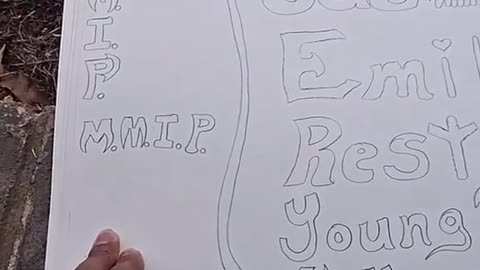 M.
I.
P.
M.M.I.P.
Emi
Rest
Young